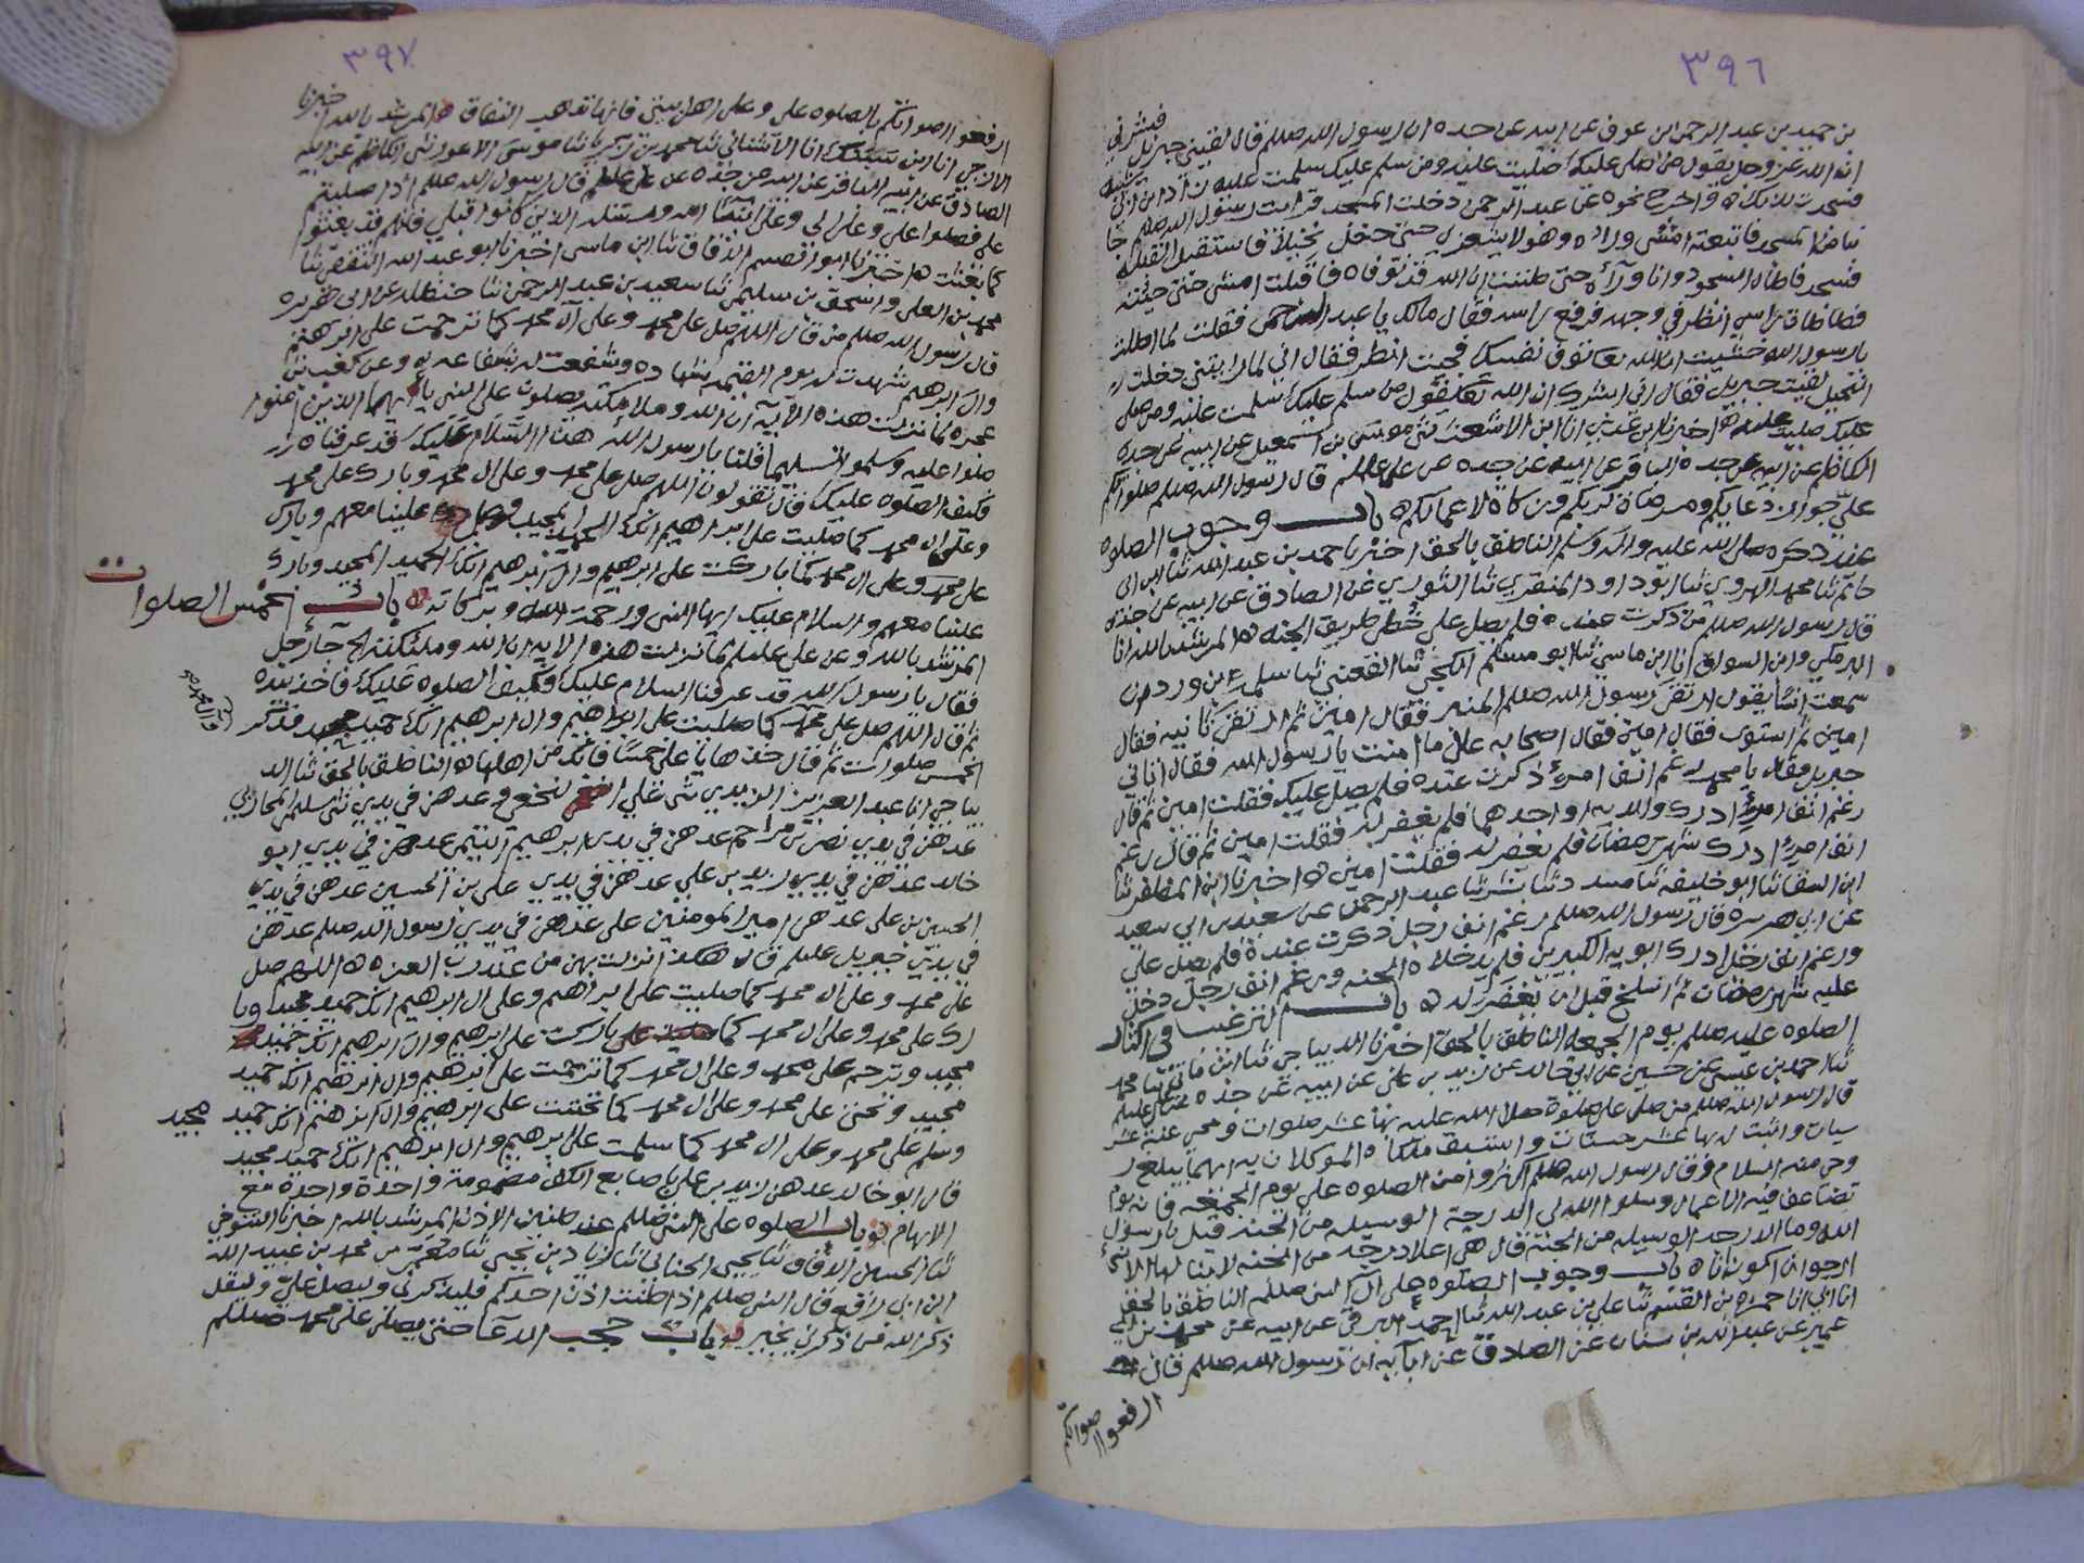 ٣٩٦
بن حميد بن عبد الرحمن ابن عوف عن ابيه عن جده ان رسول الله صللم قال لقيني جبريل فبشرني
ان الله عز وجل يقول من صلى عليك صليت عليه ومن سلم عليك سلمت عليه
فسجدت لذلك واخرج نحوه عن عبد الرحمن دخلت المسجد فرايت رسول الله صللم خا
المسجد فاتبعته امشي وراه وهو لا يشعر بي حتى دخل نخيلا فاستقبل القبلة
فسجد فاطال السجود وانا ورآءه حتى ظننت ان الله قد توفاه فاقبلت امشي حتى جئته
فطاطات راسي انظر في وجهه فرفع راسه فقال مالك يا عبد الرحمن فقلت لما اطلت
يا رسول الله خشيت ان الله توفى نفسك فجيت انظر فقال اني لما رايتني دخلت
النخيل لقيت جبريل فقال اني ابشرك ان الله تعالى يقول من سلم عليك سلمت عليه ومن صلى
عليك صليت عليه اخبرنا ابن عدي انا ابن الاشعث ثنى موسى بن اسمعيل عن ابيه عن جده
الكاظم عن ابيه عن جده الباقر عن ابيه عن جده عن علي عللم قال رسول الله صللم صلواتكم
علي جواز دعايكم ومرضاة لربكم وزكاة لاعمالكم باب وجوب الصلوه
عند ذكره صلى الله عليه واله وسلم الناطق بالحق اخبرنا حمد بن عبد الله ثنا ابن ابي
حاتم ثنا محمد الهروي ثنا ابو داود المنقري ثنا الثوري عن الصادق عن ابيه عن جده
قال رسول الله صللم من ذكرت عنده فلم يصل علي خطي طريق الجنه المرشد بالله انا
البرمكي وابن السواق انا ابن ماسي ثنا ابو مسلم الكجي ثنا القعنبي ثنا سلمة بن وردان
سمعت انسا يقول ارتقى رسول الله صللم المنبر فقال امين ثم ارتقى ثانيه فقال
امين ثم استوى فقال امين فقال اصحابه على ما امنت يا رسول الله فقال اتاني
جبريل فقال يا محمد رغم انف امرء ذكرت عنده فلم يصل عليك فقلت امين ثم قال
رغم انف امرء ادرك والديه او احدهما فلم يغفر له فقلت امين ثم قال رغم
انف امرء ادرك شهر رمضان فلم يغفر له فقلت امين اخبرنا ابن المظفر ثنا
ابن السقا ثنا ابو خليفه ثنا مسدد ثنا بشر ثنا عبد الرحمن عن سعيد بن ابي سعيد
عن ابي هريره قال رسول الله صللم رغم انف رجل ذكرت عنده فلم يصل علي
ورغم انف رجل ادرك ابويه الكبر فلم يدخلاه الجنه ورغم انف رجل دخل
عليه شهر رمضان ثم انسلخ قبل ان يغفر له باب الترغيب في اكثار
الصلوه عليه صللم يوم الجمعه الناطق بالحق اخبرنا الديباجي ثنا ابن ماتي ثنا محمد
ثنا احمد بن عيسى عن حسين عن ابي خالد عن زيد بن علي عن ابيه عن جده عن علي عليلم
قال رسول الله صللم من صلى علي صلوة صلى الله عليه بها عشر صلوات ومحي عنه عشر
سيات واثبت له بها عشر حسنات واستبق ملكاه الموكلان به ايهما يبلغ ر
وحي منه السلام وقال رسول الله صللم اكثروا من الصلوه علي يوم الجمعه فانه يوم
تضاعف فيه الاعمال وسلوا الله لي الدرجة الوسيله من الجنه قيل يا رسول
الله وما الدرجه الوسيله من الجنة قال هي اعلا درجه من الجنه لا ينالها الا نبي
ارجوا ان اكون انا باب وجوب الصلوه على آل النبي صللم الناطق بالحق
انا ابي انا حمزه بن القسم ثنا علي بن عبد الله ثنا احمد البرقي عن ابيه عن محمد بن ابي
عمير عن عبد الله بن سنان عن الصادق عن آبايه ان رسول الله صللم قال
ارفعوا اصواتكم
٣٩٧
ارفعوا اصواتكم بالصلوه علي وعلى اهل بيتي فانها تذهب النفاق المرشد بالله اخبرنا
الازجي انا ابن سبنك انا الاشناني ثنا محمد بن زكريا ثنا موسى الاعور ثنى الكاظم عن ابيه
الصادق عن ابيه الباقر عن ابيه عن جده عن علي عللم قال رسول الله صللم اذا صليتم
علي فصلوا علي وعلى الي وعلى انبيآ الله ورسله الذين كانوا قبلي فانهم قد بعثوا
كما بعثت اخبرنا ابو القسم الدقاق ثنا ابن ماسي اخبرنا ابو عبد الله ثنا
محمد بن العلى واسحق بن سليمن ثنا سعيد بن عبد الرحمن ثنا حنظله عن ابي هريره
قال رسول الله صللم من قال اللهم صل على محمد وعلى آل محمد كما ترحمت على ابرهيم
وال ابرهيم شهدت له يوم القيمه بشهاده وشفعت له بشفاعه وعن كعب بن
عجره لما نزلت هذه الآيه ان الله وملائكته يصلون على النبي يا ايها الذين امنوا
صلوا عليه وسلموا تسليما قلنا يا رسول الله هذا السلام عليك قد عرفناه
فكيف الصلوه عليك قال تقولون اللهم صل على محمد وعلى ال محمد وبارك على محمد
وعلى ال محمد كما صليت على ابراهيم انك الحميد المجيد علينا معهم وبارك
على محمد وعلى ال محمد كما باركت على ابرهيم وال ابرهيم انك الحميد المجيد وبارك
علينا معهم والسلام عليك ايها النبي ورحمة الله وبركاته باب الخمس الصلوات
المرشد بالله وعن علي عليلم لما نزلت هذه الايه ان الله وملئكته الخ جآ رجل
فقال يا رسول الله قد عرفنا السلام عليك فكيف الصلوه عليك فاخذ بيده
ثم قال اللهم صل على محمد كما صليت على ابراهيم وال ابرهيم انك حميد مجيد فذكر
وال محمد صح
الخمس صلوات ثم قال خذها يا علي خمسا فانك من اهلها الناطق بالحق ثنا الد
يباجي انا عبد العزيز الزيدي ثنى علي النخعي وعدهن في يدي ثنى سليمن المحاربي
عدهن في يدي نصر بن مزاحم عدهن في يدى ابرهيم التيمي عدهن في يدي ابو
خالد عدهن في يدي زيد بن علي عدهن في يدي علي بن الحسين عدهن في يدي
الحسين بن علي عدهن امير المومنين علي عدهن في يدي رسول الله صللم عدهن
في يدي جبريل عليلم قال هكذا نزلت بهن من عند رب العزه اللهم صل
على محمد وعلى ال محمد كما صليت على ابراهيم وعلى ال ابرهيم انك حميد مجيد وبا
رك على محمد وعلى ال محمد كما باركت على ابرهيم وال ابرهيم انك حميد
مجيد وترحم على محمد وعلى ال محمد كما ترحمت على ابرهيم وال ابرهيم انك حميد
مجيد وتحنن على محمد وعلى ال محمد كما تحننت على ابرهيم وال ابرهيم انك حميد مجيد
وسلم على محمد وعلى ال محمد كما سلمت على ابرهيم وال ابرهيم انك حميد مجيد
قال ابو خالد عدهن زيد بن علي باصابع الكف مضمومة واحدة واحدة مع
الابهام باب الصلوه على النبي صللم عند طنين الاذن المرشد بالله اخبرنا التنوخي
ثنا الحسين الدقاق ثنا يحيى الحنائي ثنا زياد بن يحيى ثنا معمر بن محمد بن عبيد الله
ابن ابي رافع قال النبي صللم اذا طنت اذن احدكم فليذكرني وليصل علي وليقل
ذكر الله من ذكرني بخير باب حجب الدعآ حتى يصلى على محمد صللم